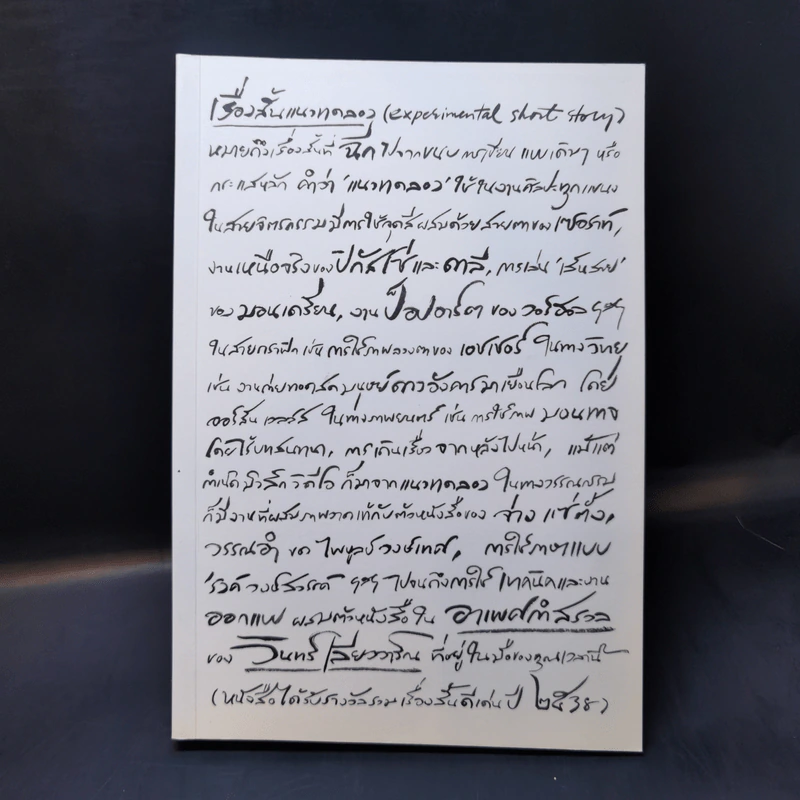 เรื่องสั้นแนวทดลอง (experimental short story)
หมายถึงเรื่องสั้นที่ ฉีก ไปจากขนบการเขียน แบบเดิมๆ หรือ
กระแสหลัก คำว่า 'แนวทดลอง' ใช้ในงานศิลปะทุกแขนง
ในสายจิตรกรรมมีการใช้จุดสีผสมด้วยสายตาของเซอราท์,
งานเหนือจริงของปิกัสโซ่และดาลี, การเล่น 'เส้นสาย'
ของ มอนเดรียน, งาน ป็อปอาร์ต ของ วอร์ฮอล ฯลฯ
ในสายกราฟิก เช่น การใช้ภาพลวงตาของ เอชเชอร์ ในทางวิทยุ
เช่น งานถ่ายทอดสดมนุษย์ดาวอังคารมาเยือนโลก โดย
ออร์สัน เวลล์ส ในทางภาพยนตร์ เช่น การใช้ภาพ
โดยไร้บทสนทนา, การเดินเรื่องจากหลังไปหน้า, แม้แต่
กำเนิดมิวสิกวิดีโอ ก็มาจากแนวทดลอง ในทางวรรณกรรม
ก็มีงานที่ผสมภาพวาดเข้ากับตัวหนังสือของ จ่าง แซ่ตั้ง,
วรรณรำ ของ ไพบูลย์ วงษ์เทศ, การใช้ภาษาแบบ
'รงค์ วงษ์สวรรค์ ฯลฯ ไปจนถึงการใช้เทคนิคและงาน
ออกแบบ ผสมตัวหนังสือใน อาเพศกำสรวล
ของ วินทร์ เลียววาริณ ที่อยู่ในมือของคุณเวลานี้
(หนังสือได้รับรางวัลรวมเรื่องสั้นดีเด่นปี ๒๕๓๘)